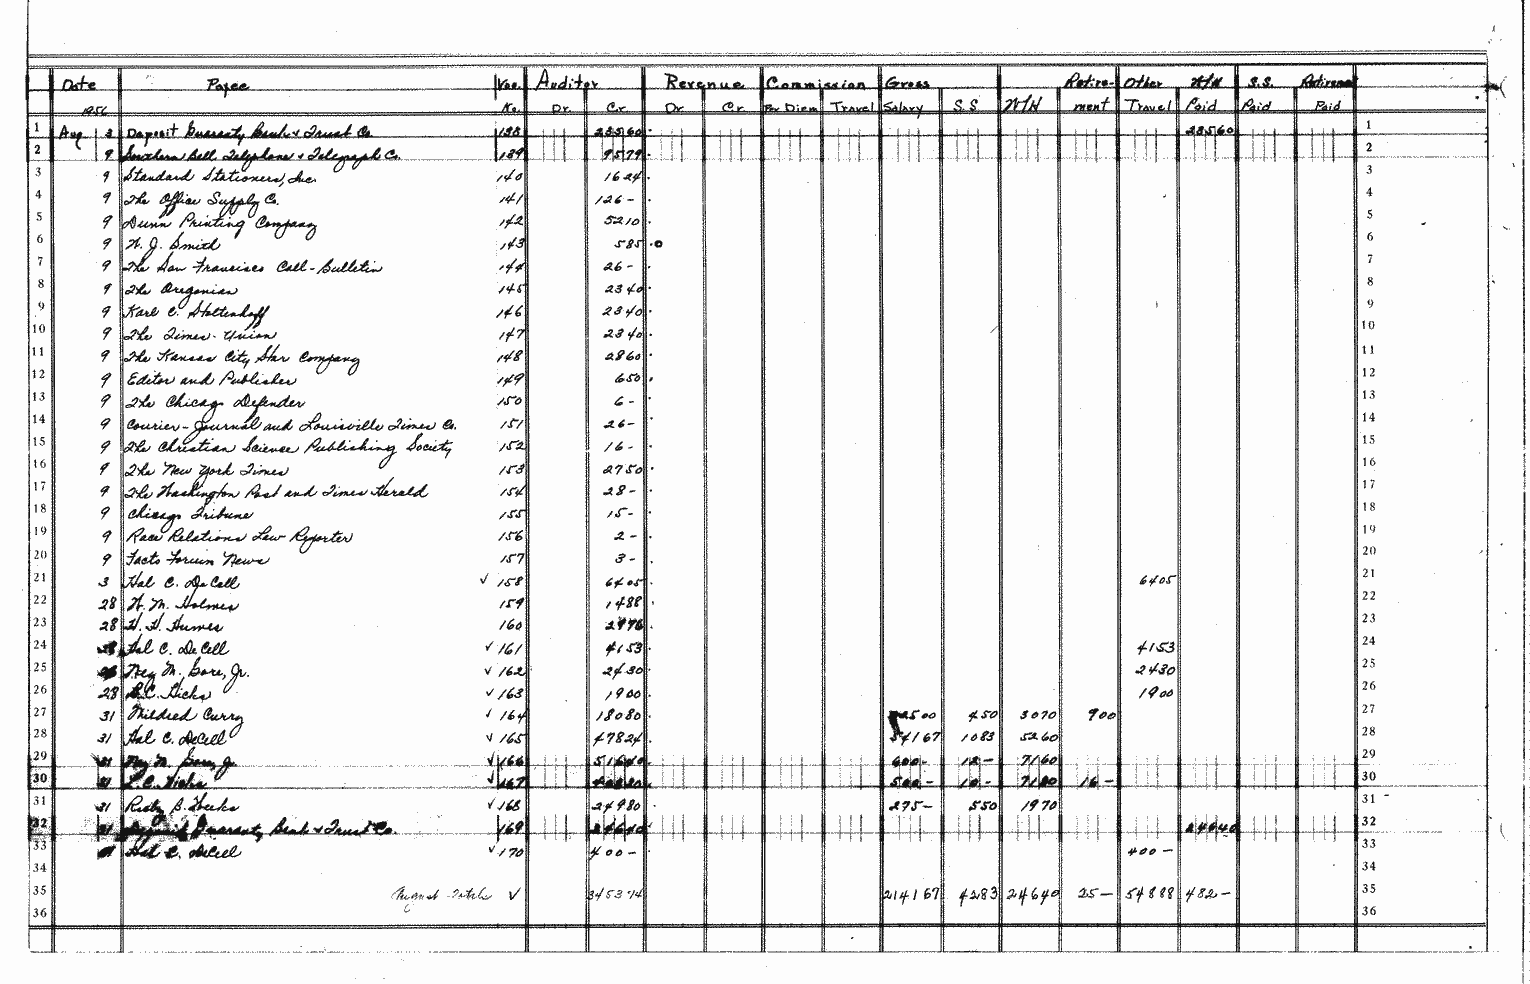 Date Payee Vou. Auditor Revenue Commission Gross Retire- Other W/H S.S. Retirement
1956 No. Dr. Cr. Dr Cr. Per Diem Travel Salary S.S W/H ment Travel Paid Paid Paid
1 Aug 3 Deposit Guaranty Bank & Trust Co. 138 23560 23560 1
2 9 Southern Bell Telephone & Telegraph Co. 139 9579 2
3 9 Standard Stationers, Inc. 140 1624 3
4 9 The Office Supply Co. 141 126- 4
5 9 Dunn Printing Company 142 5210 5
6 9 W. J. Smith 143 585 6
7 9 The San Francisco Call-Bulletin 144 26- 7
8 9 The Oregonian 145 2340 8
9 9 Karl C. 146 2340 9
10 9 The Times-Union 147 2340 10
11 9 The Kansas City Star Company 148 2860 11
12 9 Editor and Publisher 149 650 12
13 9 The Chicago Defender 150 6- 13
14 9 Courier-Journal and Louisville Times Co. 151 26- 14
15 9 The Christian Science Publishing Society 152 16- 15
16 9 The New York Times 153 2750 16
17 9 The Washington Post and Times Herald 154 28- 17
18 9 Chicago Tribune 155 15- 18
19 9 Race Relations Law Reporter 156 2- 19
20 9 Facts Forum News 157 3- 20
21 3 Hal C. DeCell ✓ 158 6405 6405 21
22 28 W. M. Holmes 159 1488 22
23 28 H. H. Humes 160 2976 23
24 28 Hal C. DeCell ✓ 161 4153 4153 24
25 28 M. Gore, Jr. ✓ 162 2430 2430 25
26 28 L.C. Hicks ✓ 163 1900 1900 26
27 31 Mildred Curry ✓ 164 18080 22500 450 3070 900 27
28 31 Hal C. DeCell ✓ 165 47824 54167 1083 5260 28
29 31 M. Gore, Jr ✓ 166 51640 600- 12- 7160 29
30 31 L.C. Hicks ✓ 167 40220 500- 10- 7180 16- 30
31 31 B. ✓ 168 24980 275- 550 1970 31
32 31 Deposit Guaranty Bank & Trust Co. 169 24640 24640 32
33 31 Hal C. DeCell ✓ 170 400- 400- 33
34 34
35 August Totals ✓ 345374 214167 4283 24640 25- 54888 482- 35
36 36